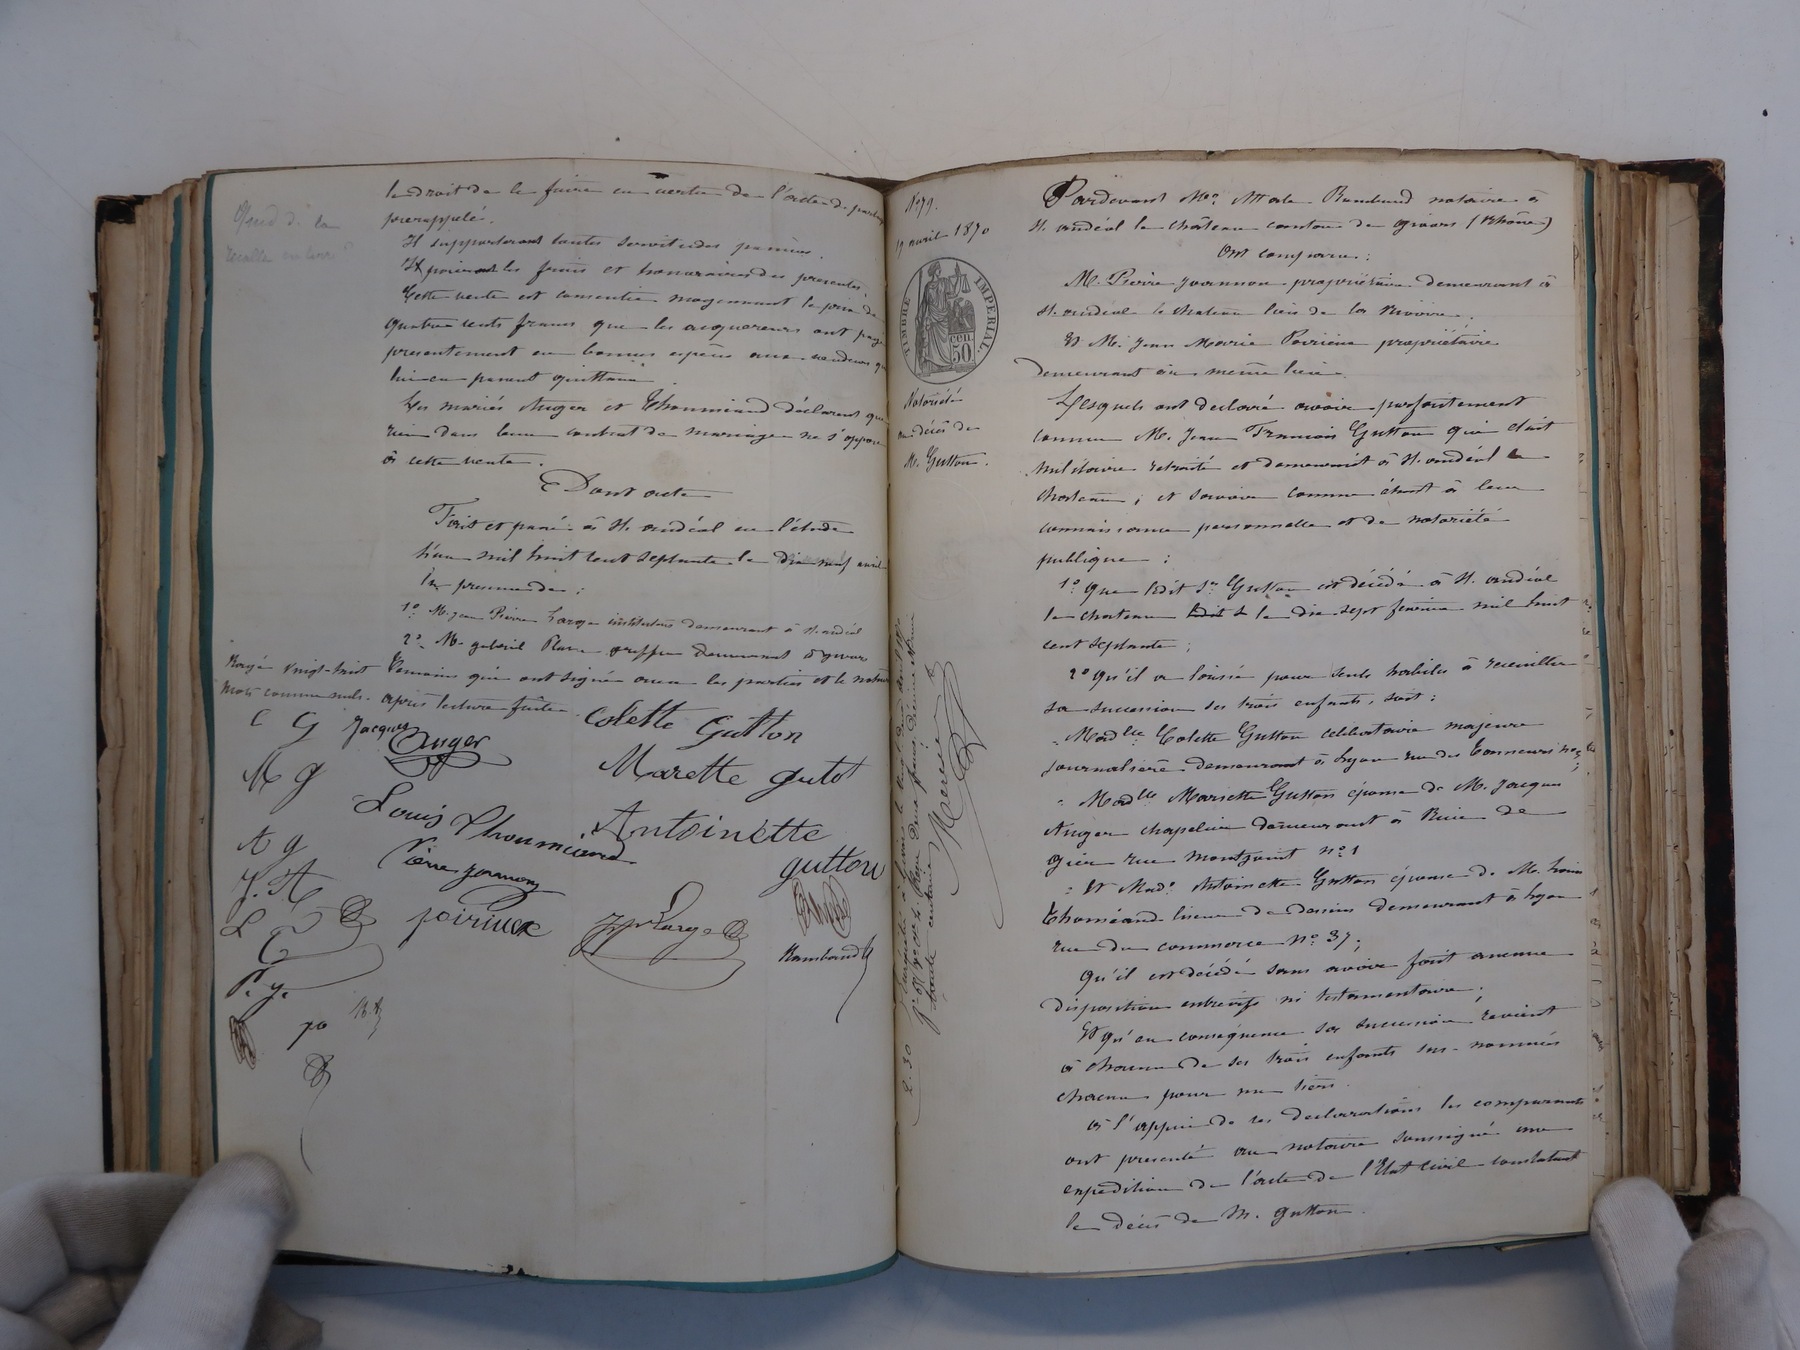 le droit de le faire en vertu de l'acte de partage
prerappelé.
Il supporteront toutes servitudes passives.
Il paieront les frais et honoraires des presentes.
Cette vente est consentie moyennant le prix de
quatre cents francs que les acquereurs ont payé
presentement en bonnes espèces aux vendeurs qui
lui en passent quittance.
Les mariés Auger et Thoumiand déclarent que
rien dans leur contrat de mariage ne s'oppose
à cette vente.
Dont acte
Fait et passé à St. andéol en l'étude
L'an mil huit cent septante le dix neuf avril
En presence de :
1o M. jean Pierre Large instituteur demeurant à St. andéol
2o M. gabriel greffier demeurant à givors
Temoins qui ont signé avec les parties et le notaire
après lecture faite.
Rayé vingt-huit
mots comme nuls.
C G Jacques Auger Colette Gutton
M g Marette gutot
Louis Thoumiand Antoinette gutton
A g Pierre joannon
J. A
L T poirieux JP Large Rambaud
P. j.
No 79.
19 avril 1870
TIMBRE IMPERIAL
50 cen.
Notoriété
au décès de
M. Gutton.
2. 30
Pardevant Me Rambaud notaire à
St. andéol le château canton de givors (Rhône)
Ont comparu :
M. Pierre joannon propriétaire demeurant à
St. andéol le chateau lieu de la Rivoire.
Et M. Jean Marie Poirieux propriétaire
demeurant au même lieu
Lesquels ont declaré avoir parfaitement
connu M. Jean Francois Gutton qui était
militaire retraité et demeurait à St. andéol le
chateau ; et savoir comme étant à leur
connaissance personnelle et de notoriété
publique :
1o Que ledit Sr Gutton est décédé à St. andéol
le chateau le dix sept fevrier mil huit
cent septante ;
2o qu'il a laissé pour seuls habiles à receuillir
sa succession ses trois enfants, soit :
Madlle Colette Gutton celibataire majeure
journaliere demeurant à Lyon rue des Tanneurs no
Madlle Mariette Gutton épouse de M. Jacques
Auger chapelier demeurant à Rive de
gier rue montjoint no 1
Et Made Antoinette Gutton épouse de M. Louis
Thoméand liseur de dessins demeurant à Lyon
rue du commerce no 37 ;
Qu'il est décédé sans avoir fait aucune
disposition entrevifs ni testamentaire ;
Et qu'en conséquence sa succession revient
à chacun de ses trois enfants sus-nommés
chacun pour un tiers.
à l'appui de ces declarations les comparants
ont presenté au notaire soussigné une
expedition de l'acte de l'Etat Civil constatant
le décès de M. gutton.